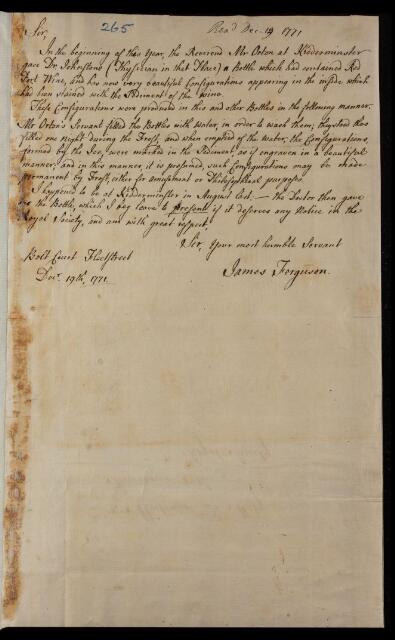 265
Read Dec. 19 1771
Sir,
In the beginning of this Year, the Reverend Mr Orton at Kidderminster
gave Dr Johnstone (Physician in that Place) a Bottle which had contained Red
Port Wine, and has now very beautiful Configurations appearing in the inside which
has been stained with the Sediment of the wine.
These Configurations were produced in this and other Bottles in the following manner.
Mr Orton's Servant filled the Bottles with Water, in order to wash them; they stood thus
filled one night during the Frost, and when emptied of the Water, the Configurations,
formed by the Ice, were marked in the Sediment, as if engraven in a beautiful
manner; and in this manner, it is presumed, such Configurations may be made
permanent by Frost, either for amusement or Philosophical purposes.
I happened to be at Kidderminster in August last, — the Doctor then gave
me the Bottle, which I beg leave to present if it deserves any Notice in the
Royal Society, and am with great respect,
Sir, Your most humble Servant
Bolt Court Fleetstreet
James Ferguson.
Decr. 19th, 1771.